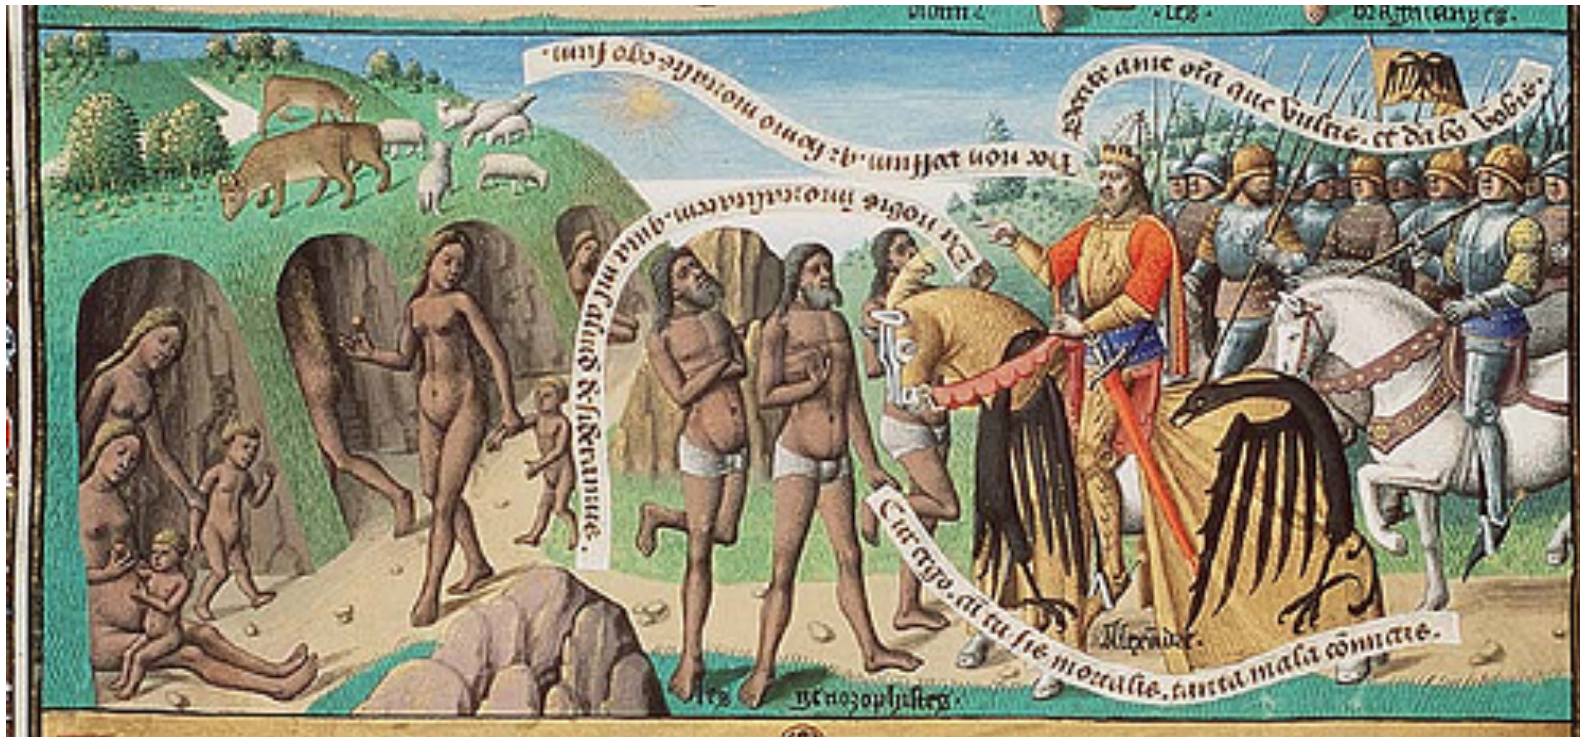 ·les·
Petite ame oīa que vultis. et dabo vobis.
Da nobis īmortalitatem. quia nil aliud desideramus.
Hoc non possum. q: homo mortalis ego sum.
Cur ergo. cū tu sis mortalis. tanta mala cōmictis.
Alexāder.
les genozophistes.